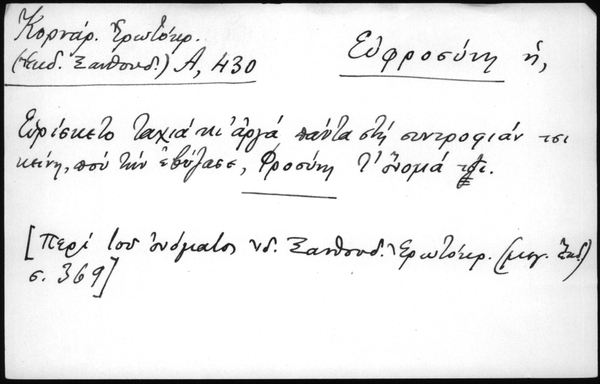 Κορνάρ. Ἐρωτόκρ.
(ἐκδ. Ξανθουδ.) Α, 430
Εὐφροσύνη ἡ,
Εὑρίσκετο ταχιά κι' ἀργά πάντα στή συντροφιάν τσι
κείνη, πού τήν ἐβύζασε, Φροσύνη τ' ὄνομά τσι.
[Περί τοῦ ὀνόματος ἰδ. Ξανθουδ. Ἐρωτόκρ. (μεγ. ἐκδ.)
σ. 369]